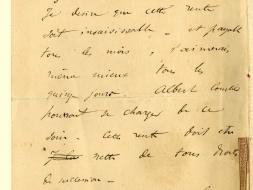 Je désire que cette rente
soit insaisissable – et payable
tous les mois, j'aimerais
même mieux tous les
quinze jours. Albert
pourrait se charger de ce
soin – Cette rente doit être
nette de tous droits
de succession –